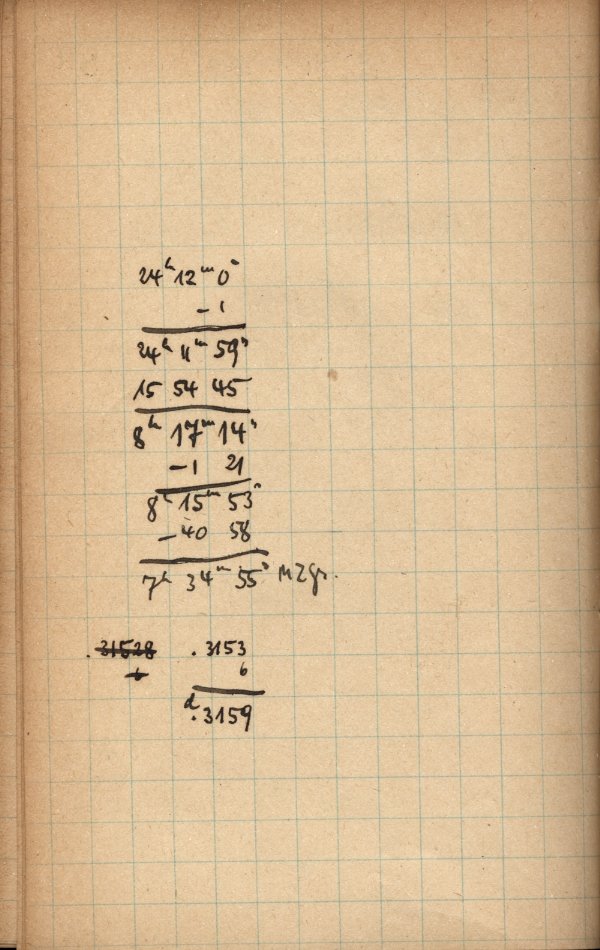 24ʰ 12ᵐ 0ˢ
– 1
24ʰ 11ᵐ 59ˢ
15 54 45
8ʰ 17ᵐ 14ˢ
–1 21
8ʰ 15ᵐ 53ˢ
–40 58
7ʰ 34ᵐ 55ˢ MZGr.
.31528 .3153
6 6
ᵈ.3159